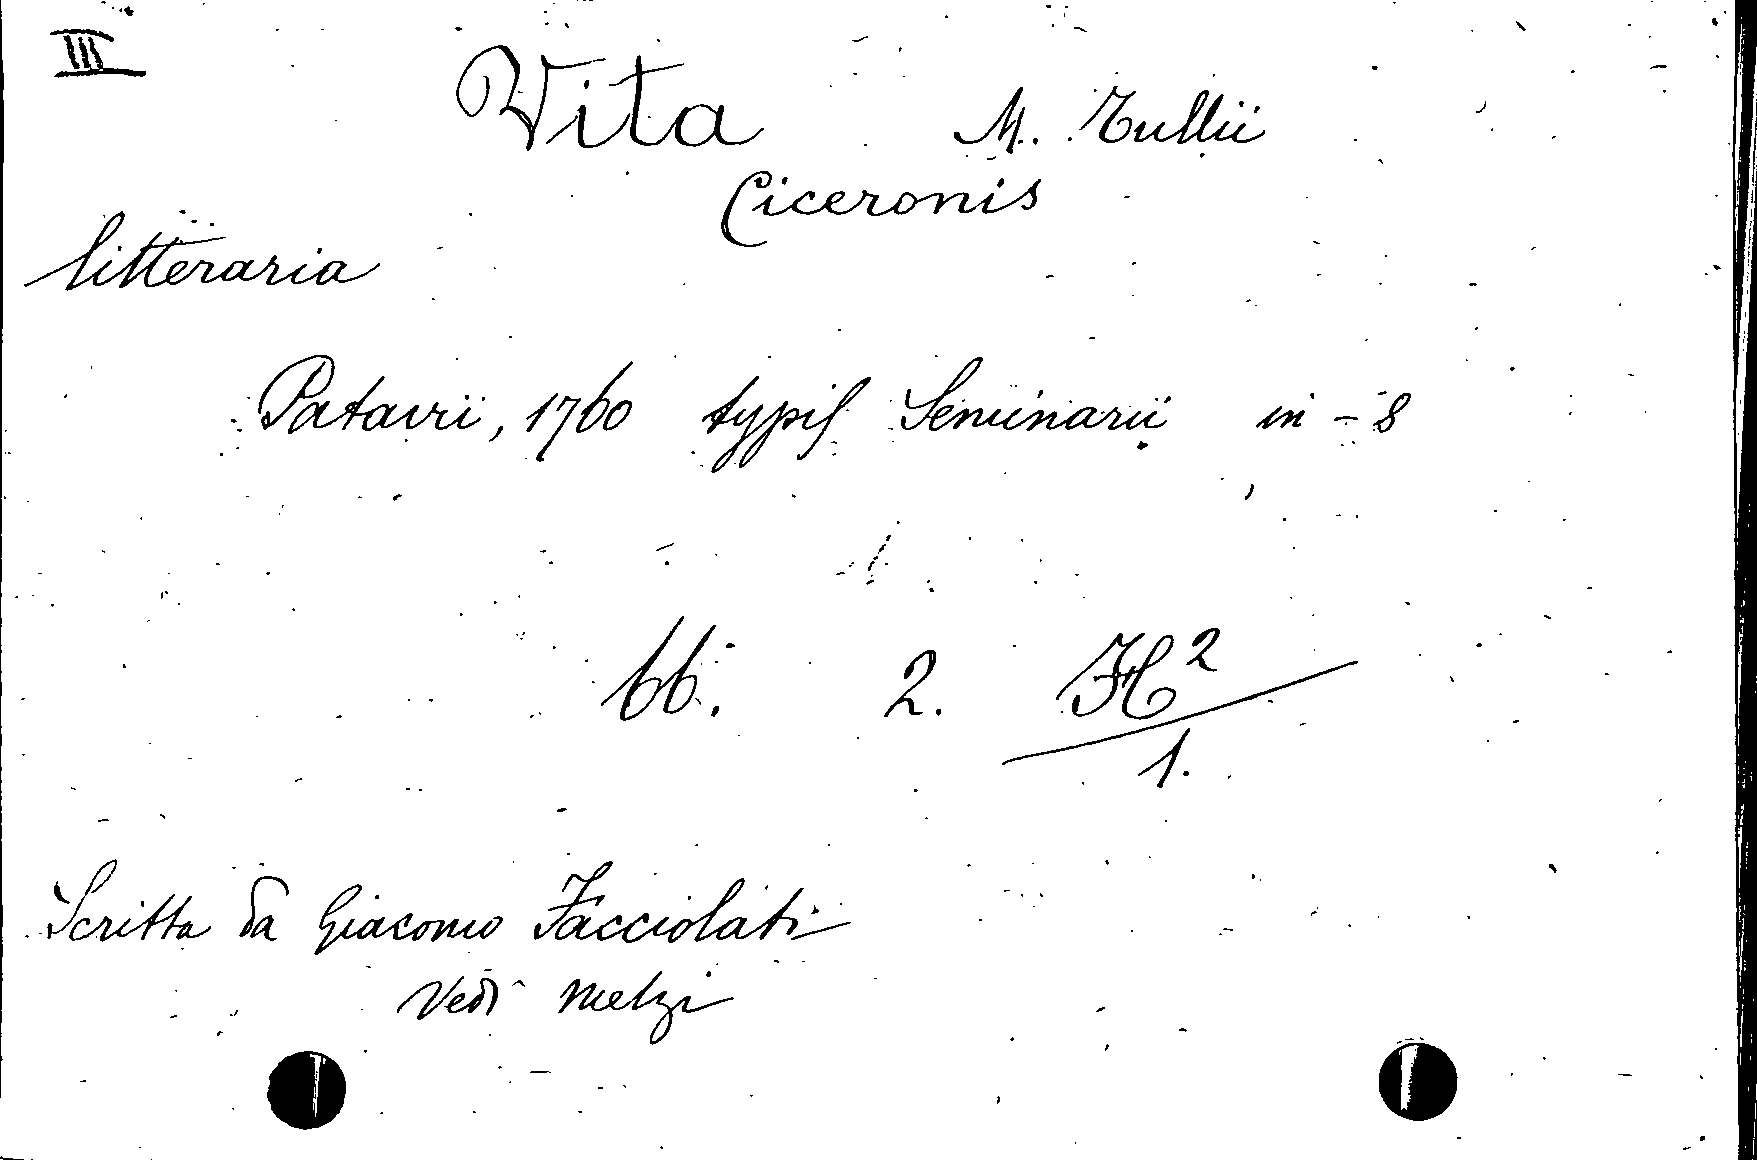 III
Vita M. Tullii
Ciceronis
litteraria
Patavii, 1760 typis Seminarii in-8
66. 2. H²
1.
Scritta da Giacomo Facciolati
Vedi Melzi